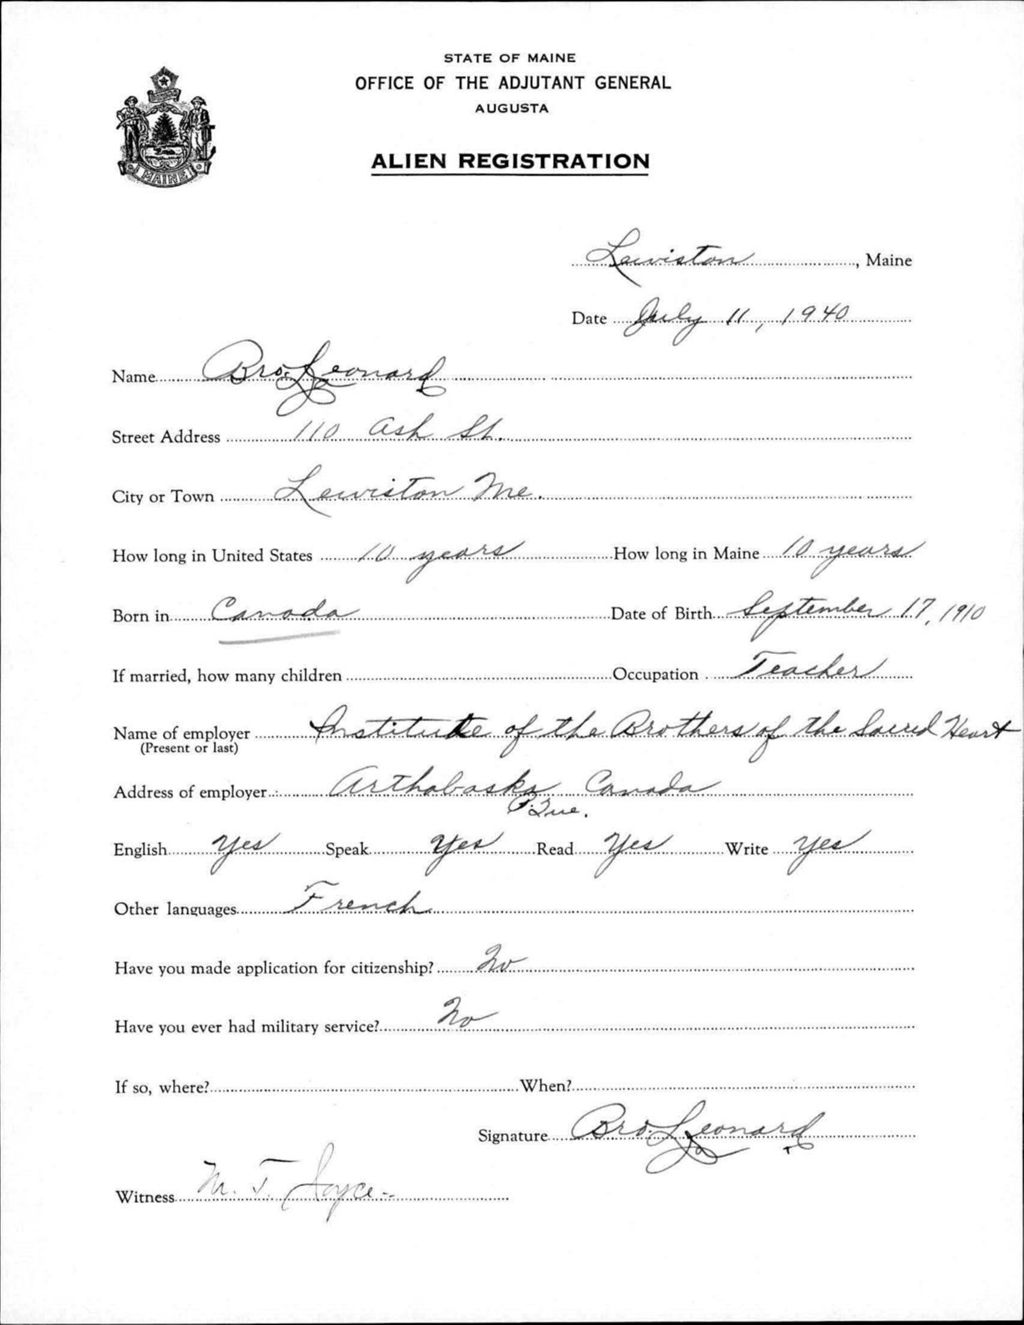 STATE OF MAINE
OFFICE OF THE ADJUTANT GENERAL
AUGUSTA
ALIEN REGISTRATION
MAINE
Lewiston, Maine
Date July 11, 1940
Name Bro. Leonard
Street Address 110 Ash St.
City or Town Lewiston Me.
How long in United States 10 years How long in Maine 10 years
Born in Canada Date of Birth September 17, 1910
If married, how many children Occupation Teacher
Name of employer Institute of the Brothers of the Sacred Heart
(Present or last)
Address of employer Arthabaska Canada
P. Que.
English Yes Speak Yes Read Yes Write Yes
Other languages French
Have you made application for citizenship? No
Have you ever had military service? No
If so, where? When?
Signature Bro. Leonard
Witness M. T. Joyce